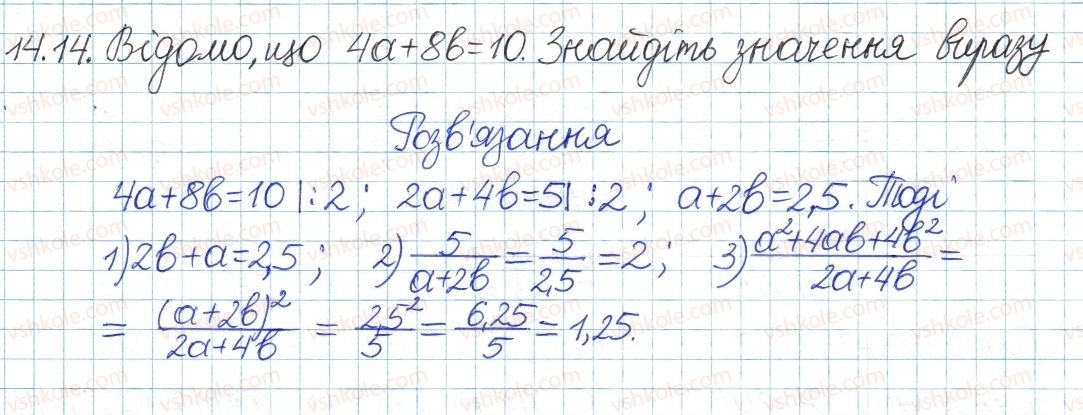 14.14. Відомо, що 4a+8b=10. Знайдіть значення виразу
Розв'язання
4a+8b=10 |:2 ; 2a+4b=5| :2 ; a+2b=2,5. Тоді
1) 2b+a=2,5 ; 2) 5/(a+2b) = 5/2,5 = 2 ; 3) (a²+4ab+4b²)/(2a+4b) =
= (a+2b)²/(2a+4b) = 2,5²/5 = 6,25/5 = 1,25.